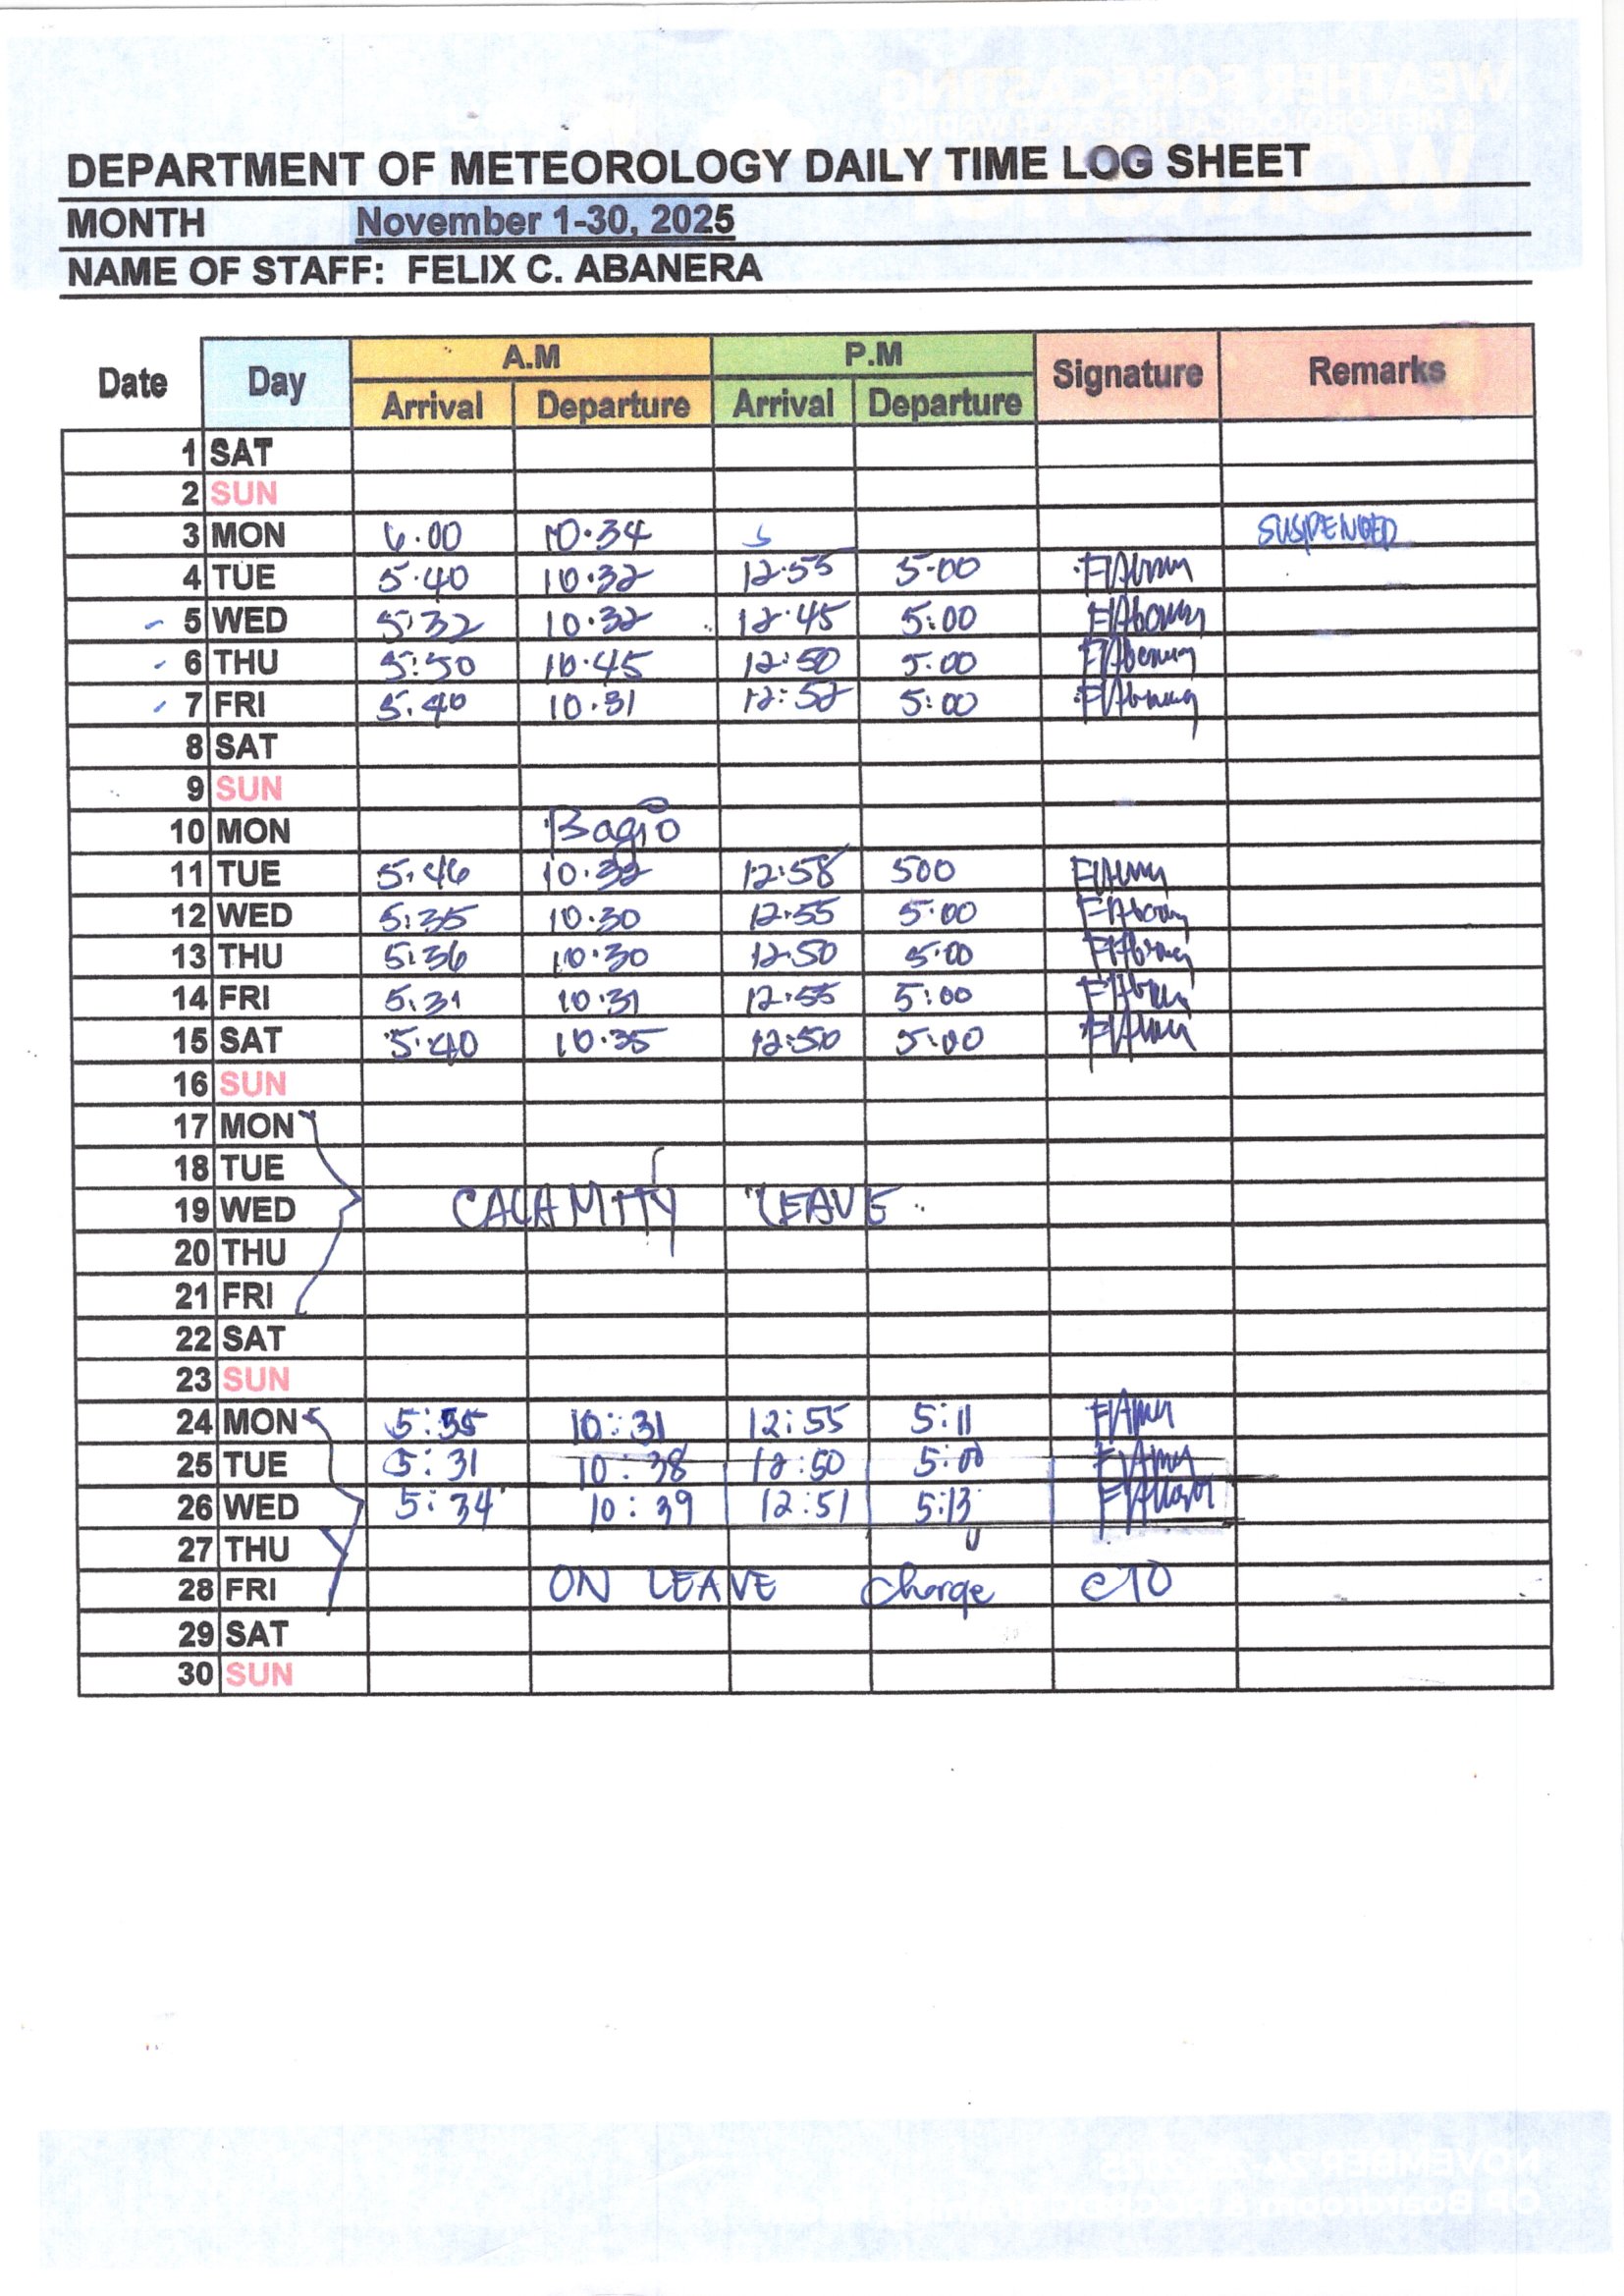 DEPARTMENT OF METEOROLOGY DAILY TIME LOG SHEET
MONTH November 1-30, 2025
NAME OF STAFF: FELIX C. ABANERA
Date Day A.M P.M Signature Remarks
Arrival Departure Arrival Departure
1 SAT
2 SUN
3 MON 6.00 10.34 SUSPENDED
4 TUE 5.40 10.32 12.55 5.00
5 WED 5:32 10.32 12.45 5:00
6 THU 5:50 10.45 12:50 5.00
7 FRI 5.40 10.31 12:52 5:00
8 SAT
9 SUN
10 MON Bagio
11 TUE 5.46 10.32 12:58 500
12 WED 5:35 10.30 12.55 5.00
13 THU 5:36 10.30 12.50 5:00
14 FRI 5.31 10.31 12.55 5:00
15 SAT 5.40 10.35 12:50 5:00
16 SUN
17 MON
18 TUE
19 WED CALAMITY LEAVE
20 THU
21 FRI
22 SAT
23 SUN
24 MON 5:35 10:31 12:55 5:11
25 TUE 5:31 10:38 12:50 5:00
26 WED 5:34 10:39 12:51 5:13
27 THU
28 FRI ON LEAVE Charge CTO
29 SAT
30 SUN